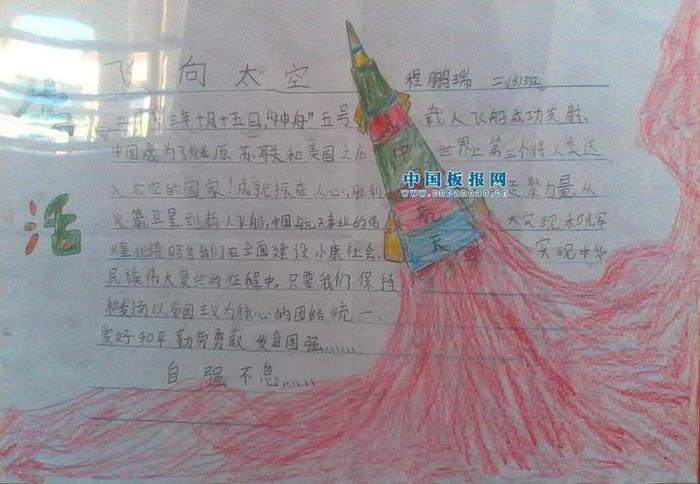 生活
飞向太空 程鹏瑞 二(3)班
二〇〇三年十月十五日,"神舟"五号 载人飞船成功发射,
中国成为了继原苏联和美国之后 世界上第三个将人类送
入太空的国家!成就振奋人心,胜利 聚力量,从
火箭卫星到载人飞船,中国航天事业的伟大
煌业绩昭告我们在全面建设小康社会, 实现中华
民族伟大复兴的征程中,只要我们保持
和发扬以爱国主义为核心的团结统一、
爱好和平勤劳勇敢 发奋图强……
自强不息……
中
航
天
中国板报网
www.cnbanbao.cn